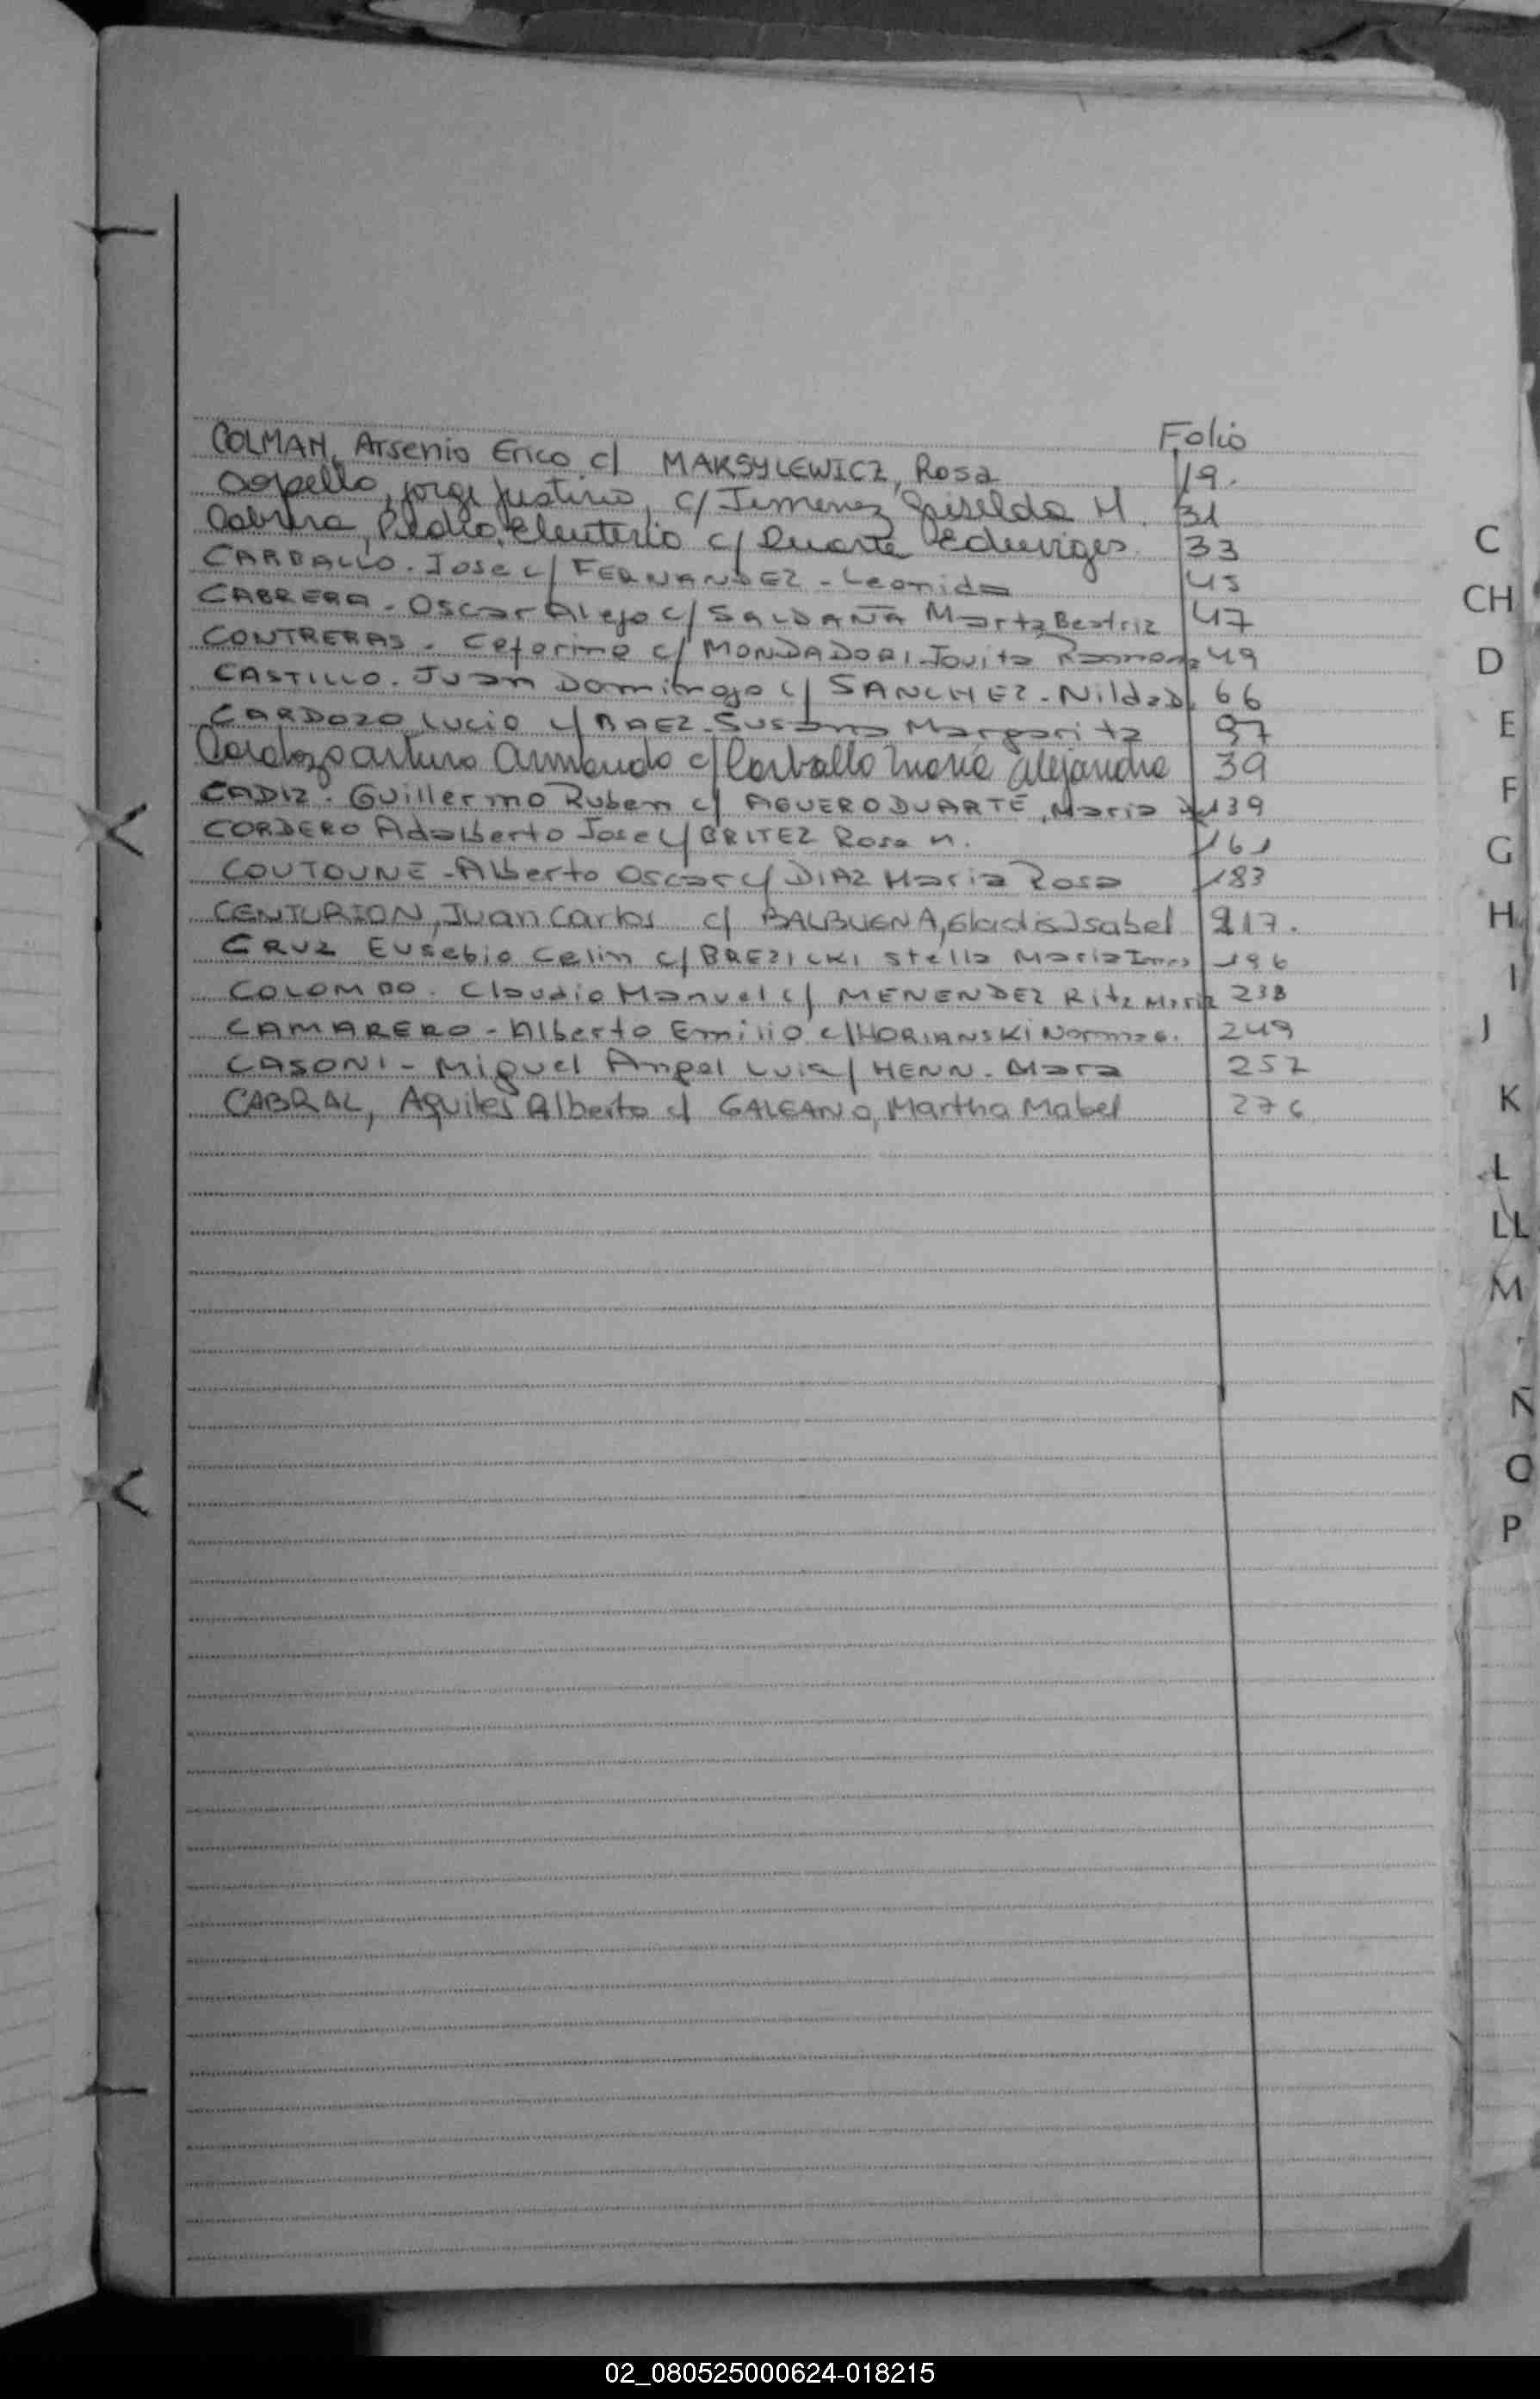 Folio
COLMAN, Arsenio Erico c/ MAKSYLEWICZ, Rosa 19.
Jorge Justino, c/ Jimenez Griselda M. 31
Cabrera, Pedro Eleuterio c/ Duarte Eduviges. 33
CARBALLO. Jose c/ FERNANDEZ - Leonida 45
CABRERA - Oscar Alejo c/ SALDAÑA Marta Beatriz 47
CONTRERAS. Ceferino c/ MONDADORI - Jovita Ramona 49
CASTILLO. Juan Domingo c/ SANCHEZ - Nilda D. 66
CARDOZO Lucio c/ BAEZ - Susana Margarita 97
Cardozo arturo Armando c/ Carballo Maria Alejandra 39
CADIZ. Guillermo Ruben c/ AGUERO DUARTE, Maria 139
CORDERO Adalberto Jose c/ BRITEZ Rosa n. 161
COUTOUNE - Alberto Oscar c/ DIAZ Maria Rosa 183
CENTURION, Juan Carlos c/ BALBUENA, Gladis Isabel 217.
CRUZ Eusebio Celin c/ BREZICKI Stella Maria 196
COLOMBO. Claudio Manuel c/ MENENDEZ Rita Maria 238
CAMARERO - Alberto Emilio c/ HORIANSKI Norma G. 249
CASONI - Miguel Angel Luis c/ HENN. Mara 257
CABRAL, Aquiles Alberto c/ GALEANO, Martha Mabel 276
C
CH
D
E
F
G
H
I
J
K
L
LL
M
Ñ
O
P
02_080525000624-018215